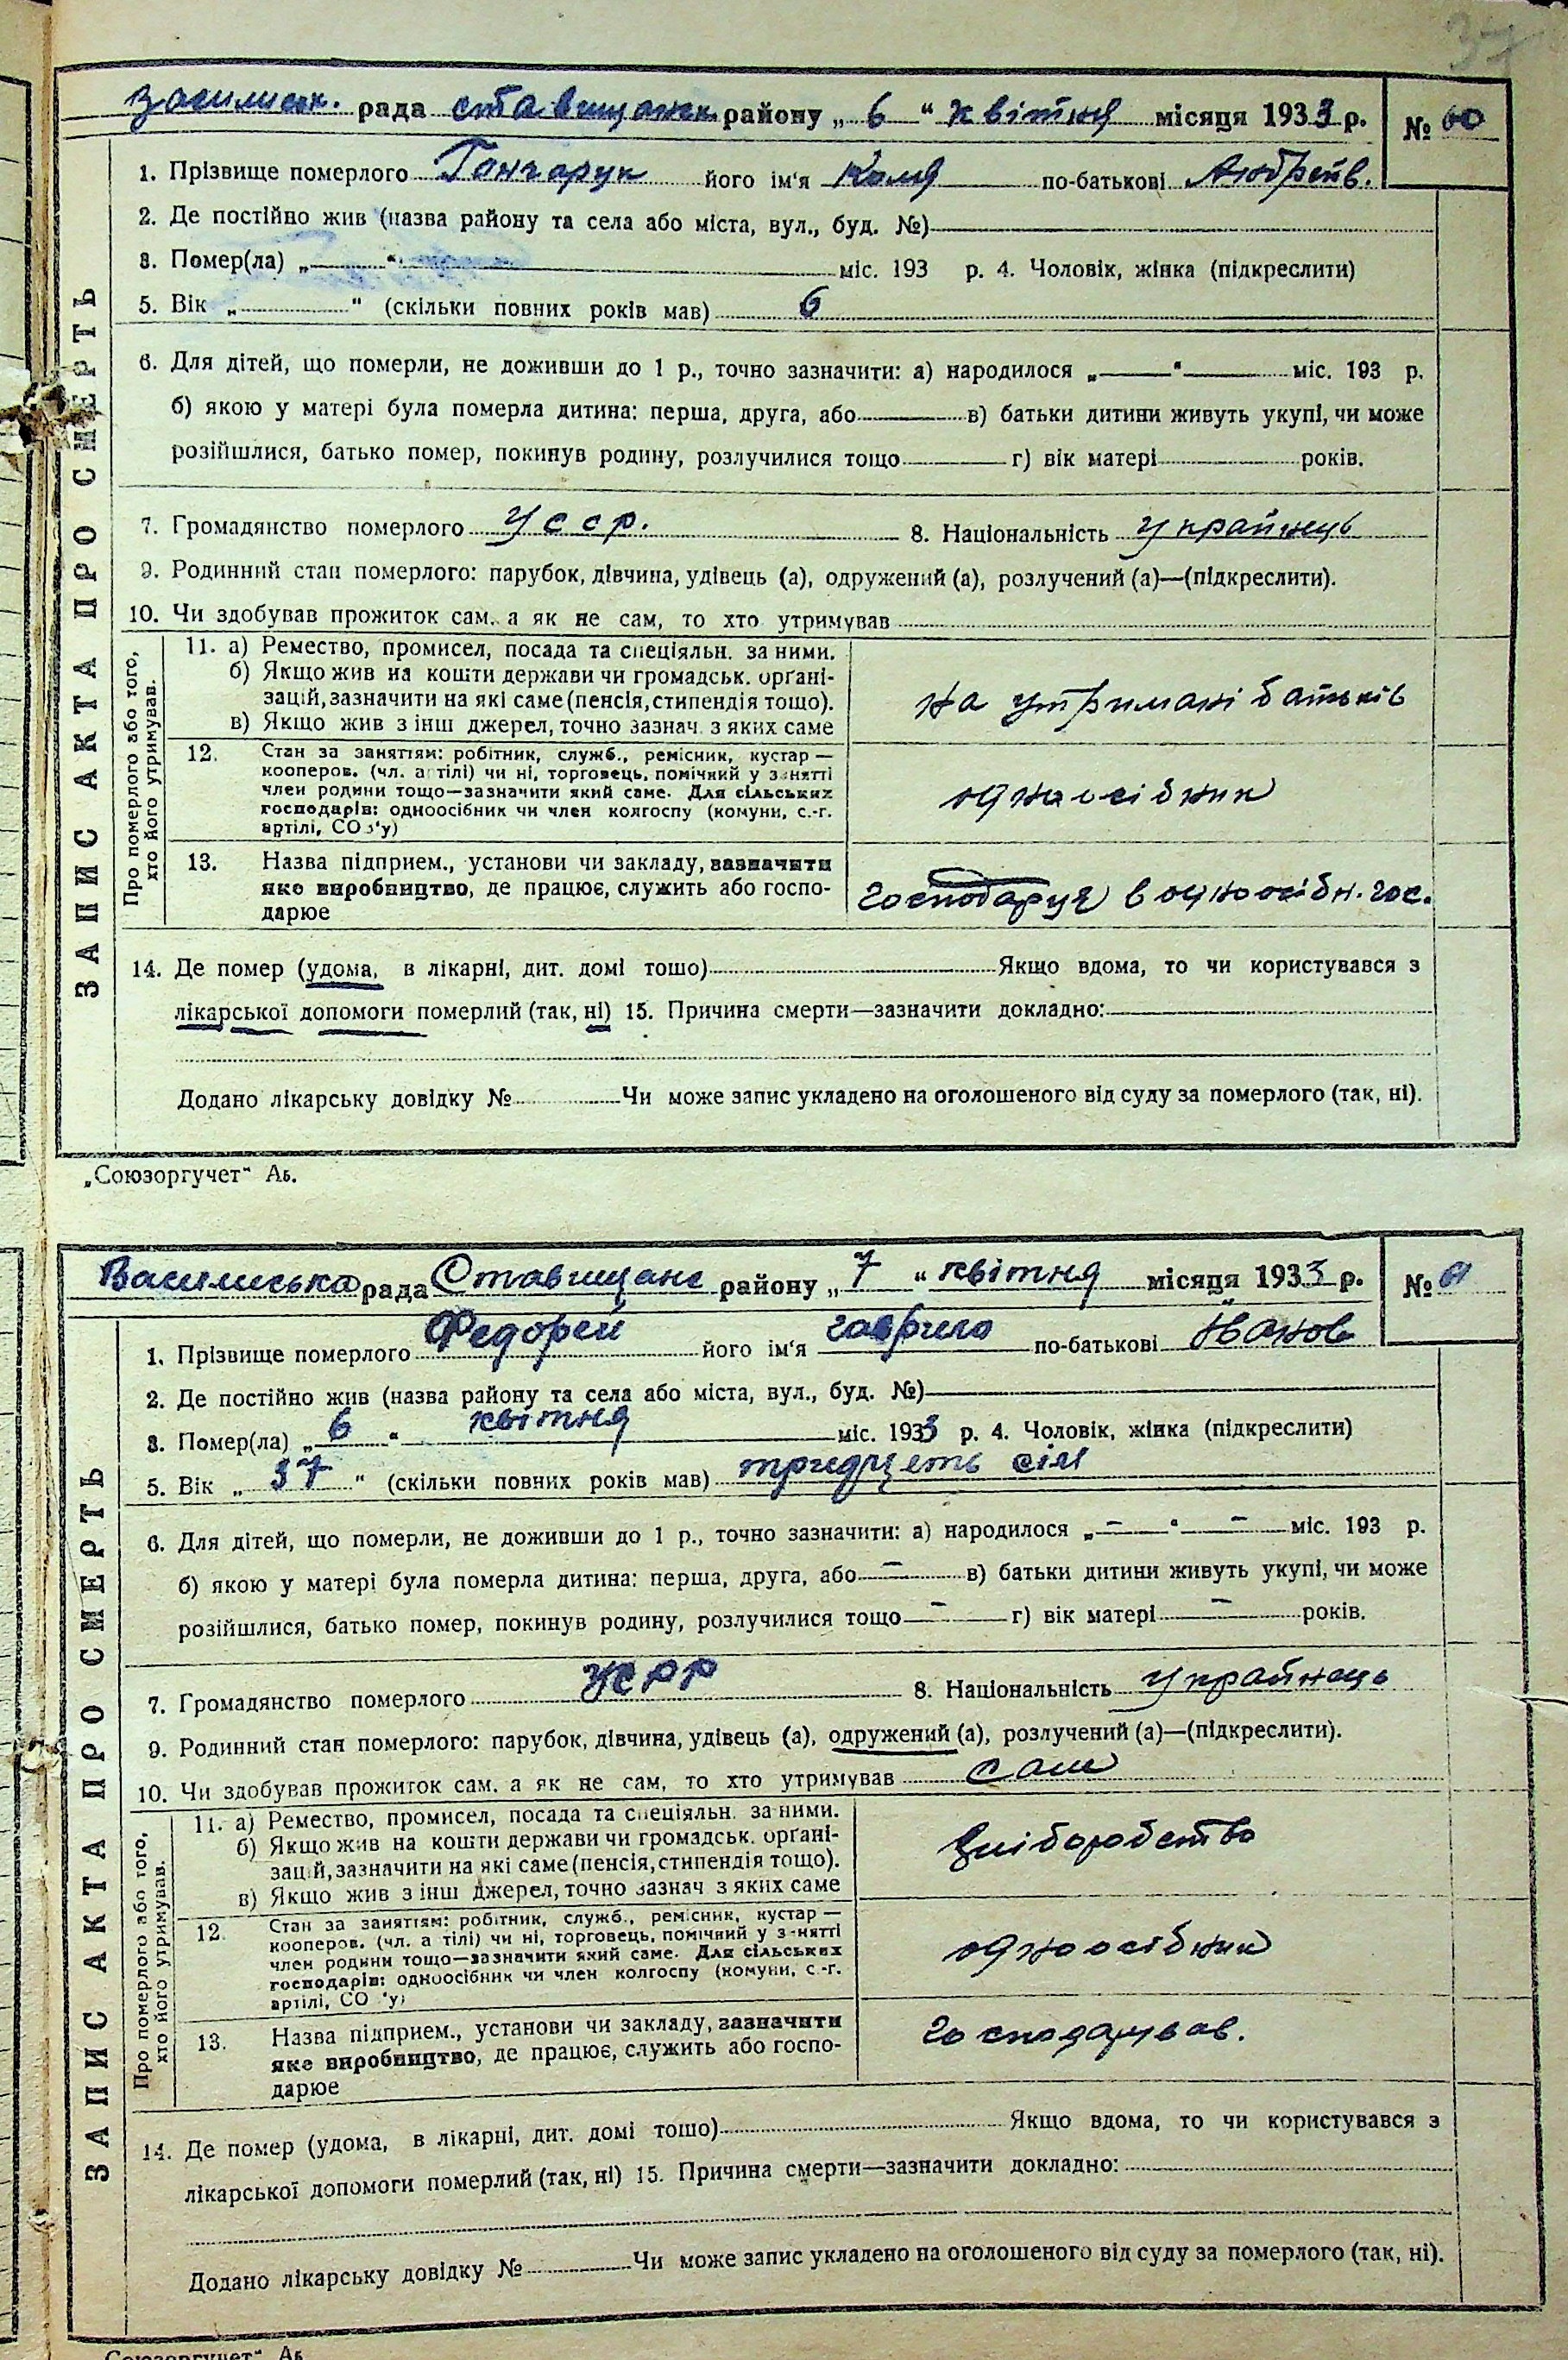 37
рада ставищанск. району „ 6 “ квітня місяця 1933 р. № 60
1. Прізвище померлого Гончарук його ім'я Коля по-батькові
2. Де постійно жив (назва району та села або міста, вул., буд. №)
3. Помер(ла) „ “ міс. 193 р. 4. Чоловік, жінка (підкреслити)
5. Вік „ “ (скільки повних років мав) 6
6. Для дітей, що померли, не доживши до 1 р., точно зазначити: а) народилося „ “ міс. 193 р.
б) якою у матері була померла дитина: перша, друга, або в) батьки дитини живуть укупі, чи може
розійшлися, батько помер, покинув родину, розлучилися тощо г) вік матері років.
7. Громадянство померлого УССР. 8. Національність українець
9. Родинний стан померлого: парубок, дівчина, удівець (а), одружений (а), розлучений (а)—(підкреслити).
10. Чи здобував прожиток сам. а як не сам, то хто утримував
ЗАПИС АКТА ПРО СМЕРТЬ
Про померлого або того, хто його утримував.
11. а) Ремество, промисел, посада та спеціяльн. за ними.
б) Якщо жив на кошти держави чи громадськ. органі-
зацій, зазначити на які саме (пенсія, стипендія тощо).
в) Якщо жив з інш джерел, точно зазнач. з яких саме
на утримані батьків
12. Стан за заняттям: робітник, служб., ремісник, кустар —
кооперов. (чл. артілі) чи ні, торговець, помічний у занятті
член родини тощо—зазначити який саме. Для сільських
господарів: одноосібник чи член колгоспу (комуни, с.-г.
артілі, СОЗ'у)
одноосібник
13. Назва підприєм., установи чи закладу, зазначити
яке виробництво, де працює, служить або госпо-
дарює
господарує в одноосібн. гос.
14. Де помер (удома, в лікарні, дит. домі тошо) Якщо вдома, то чи користувався з
лікарської допомоги померлий (так, ні) 15. Причина смерти—зазначити докладно:
Додано лікарську довідку № Чи може запис укладено на оголошеного від суду за померлого (так, ні).
„Союзоргучет“ Аб.
Василиська рада Ставищанс району „ 7 “ квітня місяця 1933 р. № 61
1. Прізвище померлого Федорей його ім'я гаврило по-батькові Иванов
2. Де постійно жив (назва району та села або міста, вул., буд. №)
3. Помер(ла) „ 6 “ квітня міс. 1933 р. 4. Чоловік, жінка (підкреслити)
5. Вік „ 37 “ (скільки повних років мав) тридцеть сім
6. Для дітей, що померли, не доживши до 1 р., точно зазначити: а) народилося „ — “ — міс. 193 р.
б) якою у матері була померла дитина: перша, друга, або — в) батьки дитини живуть укупі, чи може
розійшлися, батько помер, покинув родину, розлучилися тощо — г) вік матері — років.
7. Громадянство померлого УСРР 8. Національність українець
9. Родинний стан померлого: парубок, дівчина, удівець (а), одружений (а), розлучений (а)—(підкреслити).
10. Чи здобував прожиток сам. а як не сам, то хто утримував сам
ЗАПИС АКТА ПРО СМЕРТЬ
Про померлого або того, хто його утримував.
11. а) Ремество, промисел, посада та спеціяльн. за ними.
б) Якщо жив на кошти держави чи громадськ. органі-
зацій, зазначити на які саме (пенсія, стипендія тощо).
в) Якщо жив з інш джерел, точно зазнач з яких саме
12. Стан за заняттям: робітник, служб., ремісник, кустар —
кооперов. (чл. артілі) чи ні, торговець, помічний у занятті
член родини тощо—зазначити який саме. Для сільських
господарів: одноосібник чи член колгоспу (комуни, с.-г.
артілі, СОЗ'у)
одноосібник
13. Назва підприєм., установи чи закладу, зазначити
яке виробництво, де працює, служить або госпо-
дарює
господарував.
14. Де помер (удома, в лікарні, дит. домі тошо) Якщо вдома, то чи користувався з
лікарської допомоги померлий (так, ні) 15. Причина смерти—зазначити докладно:
Додано лікарську довідку № Чи може запис укладено на оголошеного від суду за померлого (так, ні).
Союзоргучет“ Аб